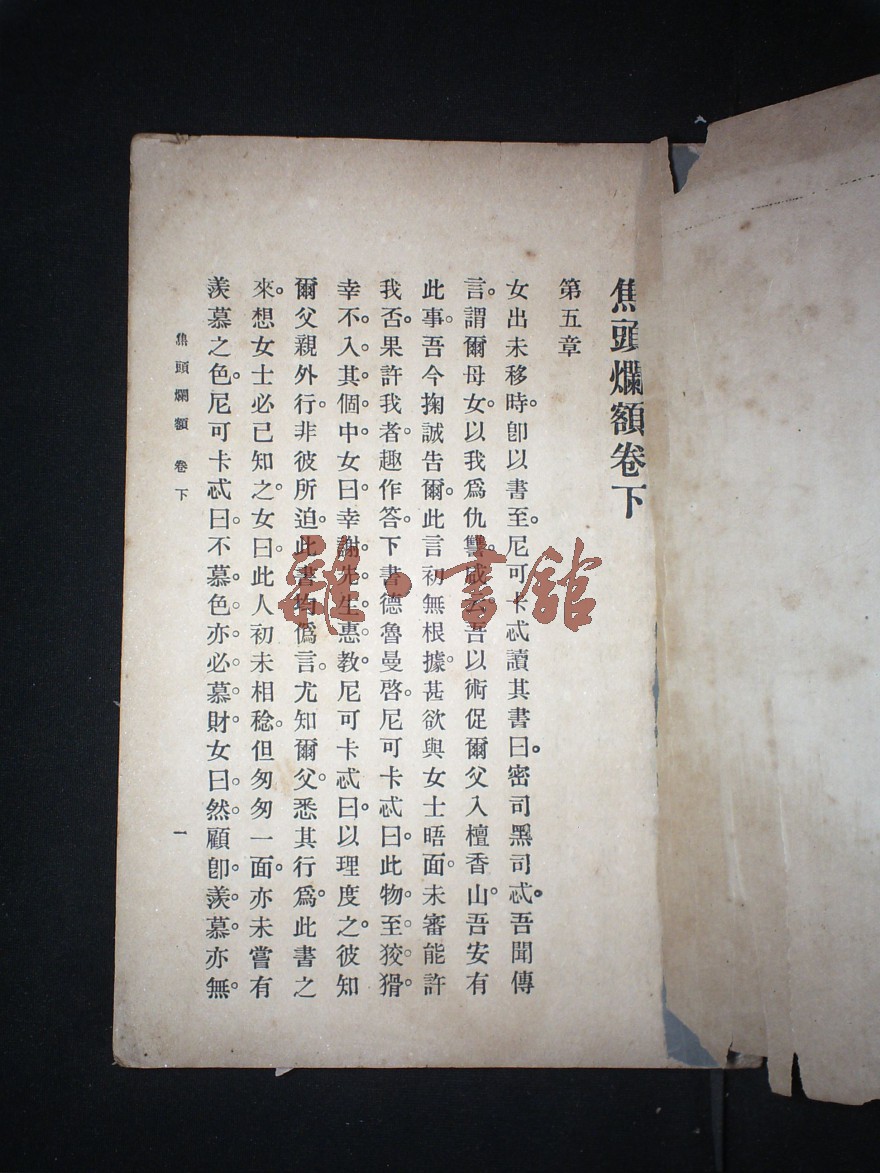 焦頭爛額卷下
第五章
女出未移時。卽以書至。尼可卡忒讀其書曰。密司黑司忒。吾聞傳
言。謂爾母女以我爲仇讐。或云吾以術促爾父入檀香山。吾安有
此事。吾今掬誠告爾。此言初無根據。甚欲與女士晤面。未審能許
我否。果許我者。趣作答。下書德魯曼啓。尼可卡忒曰。此物。至狡猾。
幸不入其個中。女曰。幸謝先生。惠教。尼可卡忒曰。以理度之。彼知
爾父親外行。非彼所迫。此書均僞言。尤知爾父。悉其行爲。此書之
來。想女士必已知之。女曰。此人初未相稔。但匆匆一面。亦未嘗有
羨慕之色。尼可卡忒曰。不慕色。亦必慕財。女曰。然。顧卽羨慕。亦無。
焦頭爛額 卷下 一
雜·書館